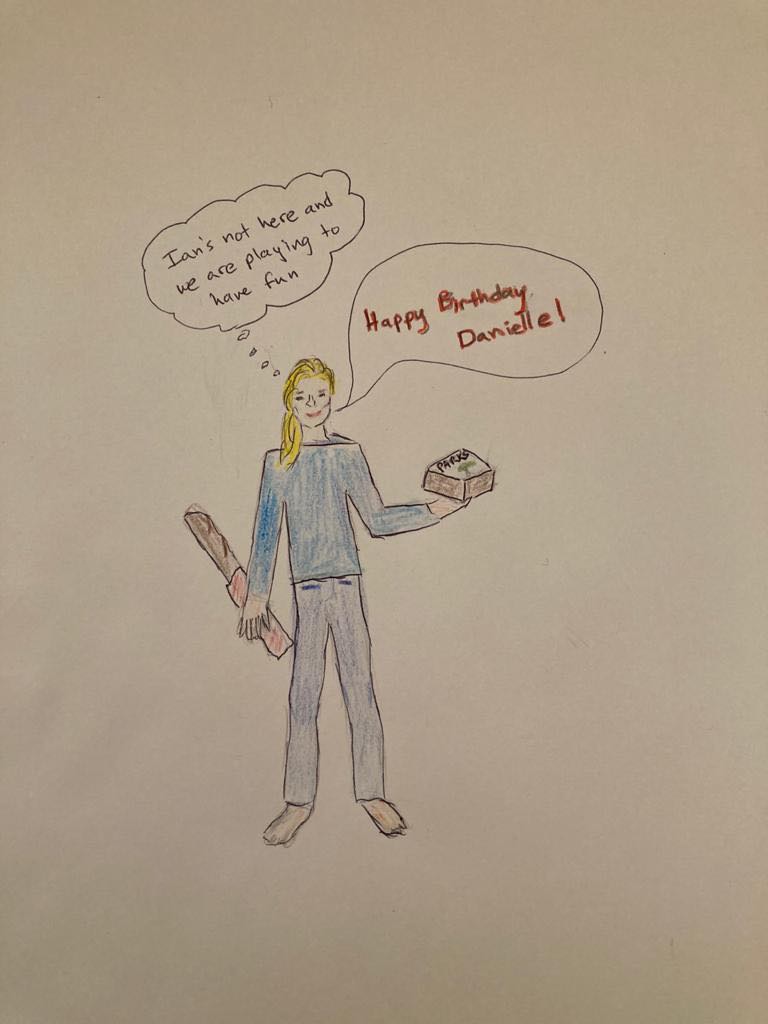 Ian's not here and
we are playing to
have fun
Happy Birthday
Danielle!
PARKS